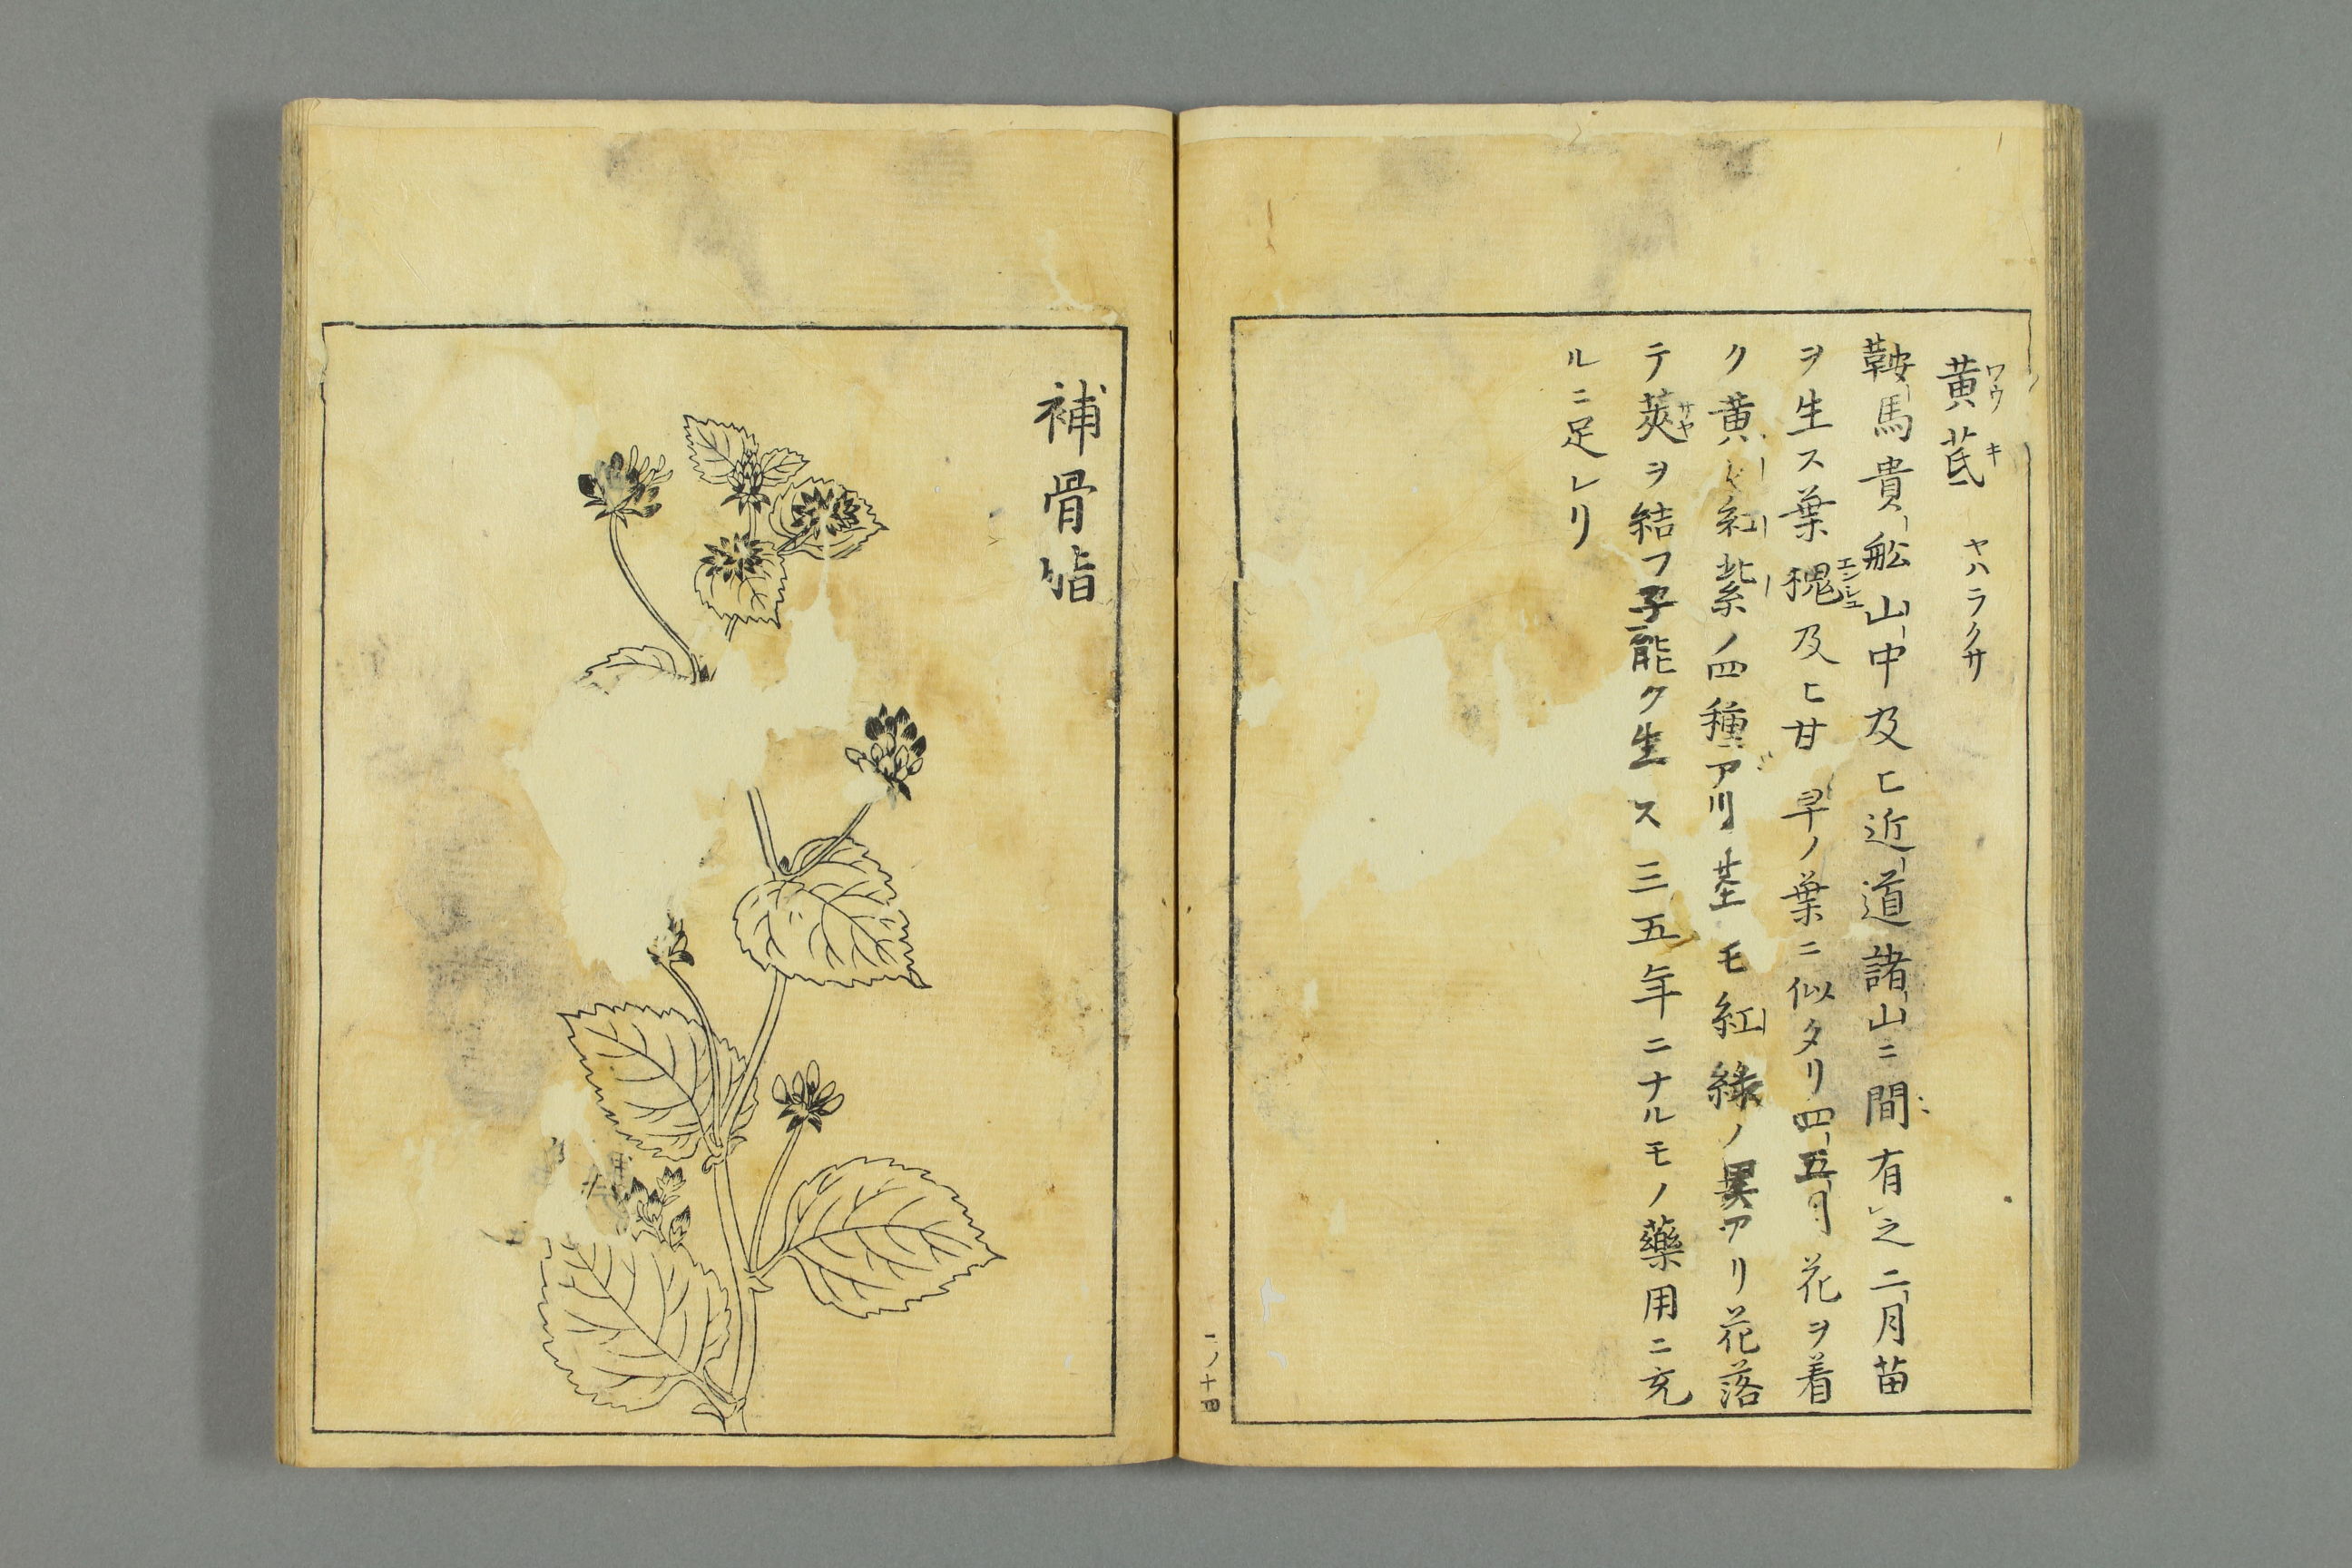 黄芪 ヤハラクサ
ワウ キ
鞍馬貴舩山中及ヒ近道諸山ニ間有之二月苗
ヲ生ス葉槐及ヒ甘草ノ葉ニ似タリ四五月花ヲ着
エンシユ
ク黄 紅紫ノ四種アリ茎モ紅緑ノ異アリ花落
テ莢ヲ結フ子能ク生ス三五年ニナルモノ藥用ニ充
サヤ
ルニ足レリ
一ノ十四
補骨脂